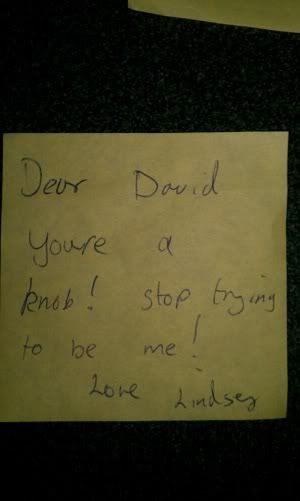 Dear David
Youre a
knob! stop trying
to be me!
Love Lindsey